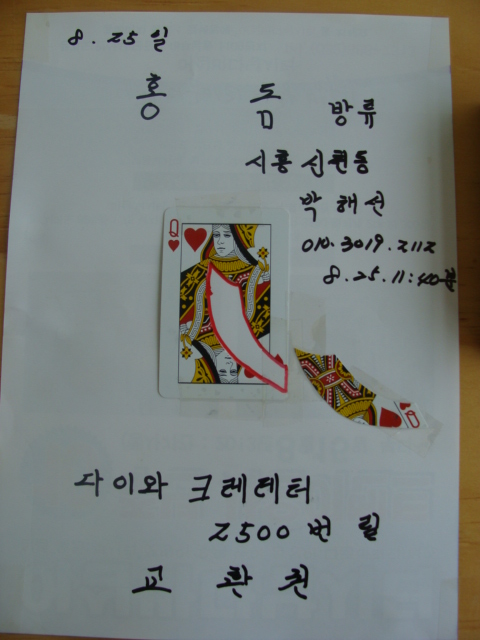 8.25일
홍 돔 방류
시흥 신현동
박해선
010.3019.2112
8.25.11:40분
Q
Q
다이와 크레테터
2500번 릴
교환권